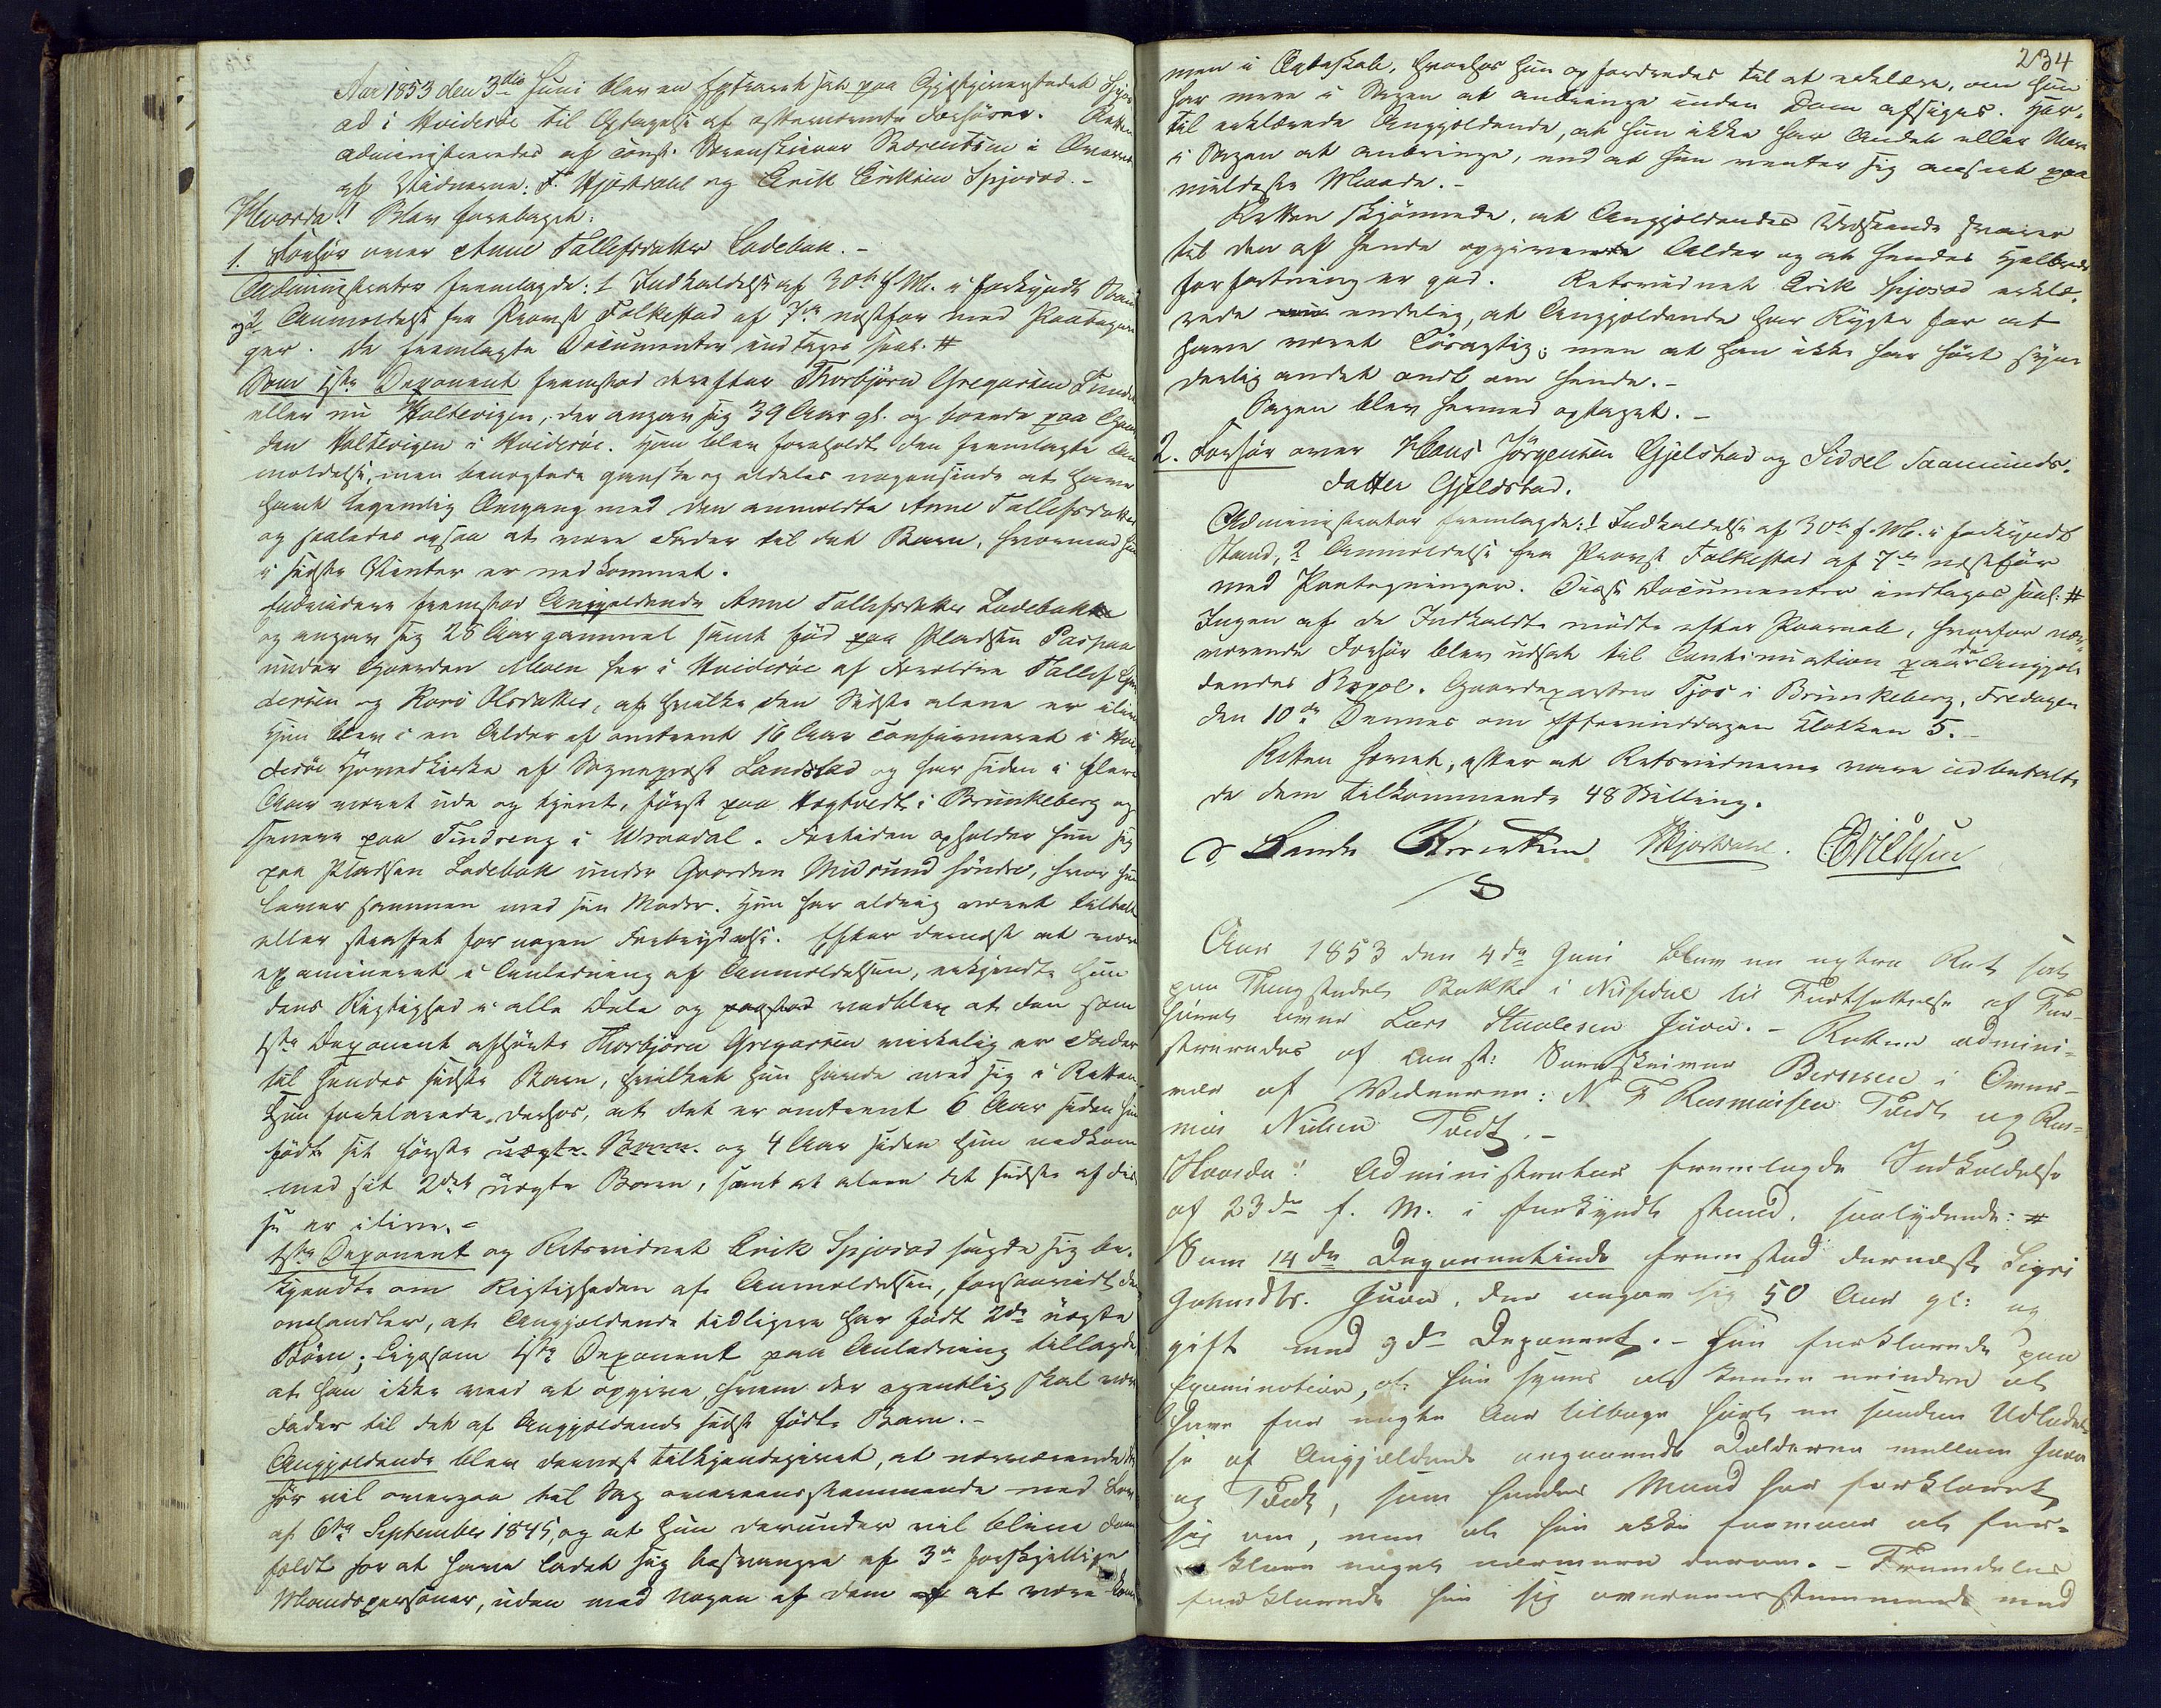 Aar 1853 den 3die Juni blev en Extraret sat paa Gjæstgiverstedet Spjos-
od i Hviderøe til Optagelse af efternævnte Forhører. Retten
administreredes af const. Sorenskriver Borentsen i Overvær
af Vidnerne: F. Hjortdahl og Erik Eriksen Spjosod.-
Hvorda! Blev foretaget:
1. Forhør over Anne Tallefsdatter Ladebak.-
Administrator fremlagde: 1 Indkaldelse af 30te f. M. i forkyndt Stand
og 2 Anmeldelse fra Provst Folkestad af 7de næstfør med Paategnin-
ger. De fremlagte Documenter indtages saal. #
Som 1ste Deponent fremstod derefter Thorbjørn Gregarsen
eller nu Holtevigen, der angav sig 39 Aar gl. og boende paa Gaar-
den Holtevigen i Hviderøe. Han blev foreholdt den fremlagte An-
meldelse, men benegtede ganske og aldeles nogensinde at have
havt legemlig Omgang med den anmeldte Anne Tallefsdatter
og saaledes ogsaa at være Fader til det Barn, hvormed hun
i sidste Vinter er nedkommet.
Endvidere fremstod Angjældende Anne Tallefsdatter Ladebak
og angav sig 25 Aar gammel samt fød paa Pladsen Paspaa
under Gaarden Moen her i Hviderøe af Forældre Tallef
dersen og Kari Olsdatter, af hvilke den Sidste alene er ilive
Hun blev i en Alder af omtrent 16 Aar confirmeret i Hvi-
derøe Hovedkirke af Sognepræst Landstad og har siden i flere
Aar været ude og tjent, først paa Hægtvedt i Brunkeberg og
senere paa Tindreng i Vraadal. Fortiden opholder hun sig
paa Pladsen Ladebak under Gaarden Midsund søndre, hvor hun
lever sammen med sin Moder. Hun har aldrig været tiltalt
eller straffet for nogen Forbrydelse. Efter dernæst at være
examineret i Anledning af Anmeldelsen, erkjendte hun
dens Rigtighed i alle Dele og paastod vedblev at den som
1ste Deponent afhørte Thorbjørn Gregarsen virkelig er Fader
til hendes sidste Barn, hvilket hun havde med sig i Retten.
Hun forklarede derhos, at det er omtrent 6 Aar siden hun
fødte sit første uægte Barn og 4 Aar siden hun nedkom
med sit 2det uægte Barn, samt at alene det sidste af dis-
se er ilive.-
1ste Deponent og Retsvidnet Erik Spjosod sagde sig be-
kjendt om Rigtigheden af Anmeldelsen, forsaavidt den
omhandler, at Angjældende tidligere har født 2de uægte
Børn; ligesom 1ste Deponent paa Anledning tillagde
at han ikke veed at opgive, hvem der egentlig skal være
Fader til det af Angjældende sidst fødte Barn.-
Angjældende blev dernæst tilkjendegivet, at nærværende For-
hør vil overgaa til Sag overeensstemmende med Lov
af 6te September 1845, og at hun derunder vil blive dom-
fældt for at have ladet sig besvangre af 3de forskjellige
Mandspersoner, uden med Nogen af dem at være kom-
234
men i Ægteskab, hvorhos hun opfordredes til at erklære, om hun
har mere i Sagen at anbringe inden Dom afsiges. Her-
til erklærede Angjældende, at hun ikke har Andet eller Mere
i Sagen at anbringe, end at hun venter sig anseet paa
mildeste Maade.-
Retten skjønnede, at Angjældendes Udseende svarer
til den af hende opgivende Alder og at hendes Helbreds
forfatning er god. Retsvidnet Erik Spjosod erklæ-
rede endelig, at Angjældende har Rygte for at
have været løsagtig; men at han ikke har hørt syn-
derlig andet ondt om hende.-
Sagen blev hermed optaget.-
2. Forhør over Hans Jörgensen Gjelstad og Sidsel Saamunds-
datter Gjeldstad.
Administrator fremlagde: 1 Indkaldelse af 30te f. M. i forkyndt
Stand, 2 Anmeldelse fra Provst Folkestad af 7de næstfør
med Paategninger. Disse Documenter indtages saal: #
Ingen af de Indkaldte mødte efter Paaraab, hvorfor nær-
værende Forhør blev udsat til Continuation paa de Angjæl-
dendes Bopæl, Gaardeparten Tjos i Brunkeberg, Fredagen
den 10de Dennes om Eftermiddagen Klokken 5.-
Retten hævet, efter at Retsvidnerne vare udbetalte
de dem tilkommende 48 Skilling.
Hjortdahl. Eriksen
Aar 1853 den 4de Juni blev en extra Ret sat
paa Thingstedet Bakke i Nissedal til Fortsættelse af For-
høret over Lars Staalesen Juve.- Retten admini-
streredes af const: Sorenskriver Berntsen i Overvæ-
relse af Vidnerne: N F Rasmussen Tvedt og Ras-
mus Nielsen Tvedt.-
Hvorda! Administrator fremlagde Indkaldelse
af 23de f. M. i forkyndt Stand, saalydende: #
Som 14de Deponentinde fremstod dernæst Sigri
Gahmdtr. Juve, der angav sig 50 Aar gl: og
gift med 9de Deponent.- Hun forklarede paa
Examination, at hun synes at kunne erindre at
have for nogle Aar tilbage hørt en saadan Udladel-
se af Angjældende angaaende Delderne mellem Juve
og Tvedt, som hendes Mand har forklaret
sig om, men at hun ikke formaaer at for-
klare noget nærmere derom.- Fremdeles
forklarede hun sig overeensstemmende med